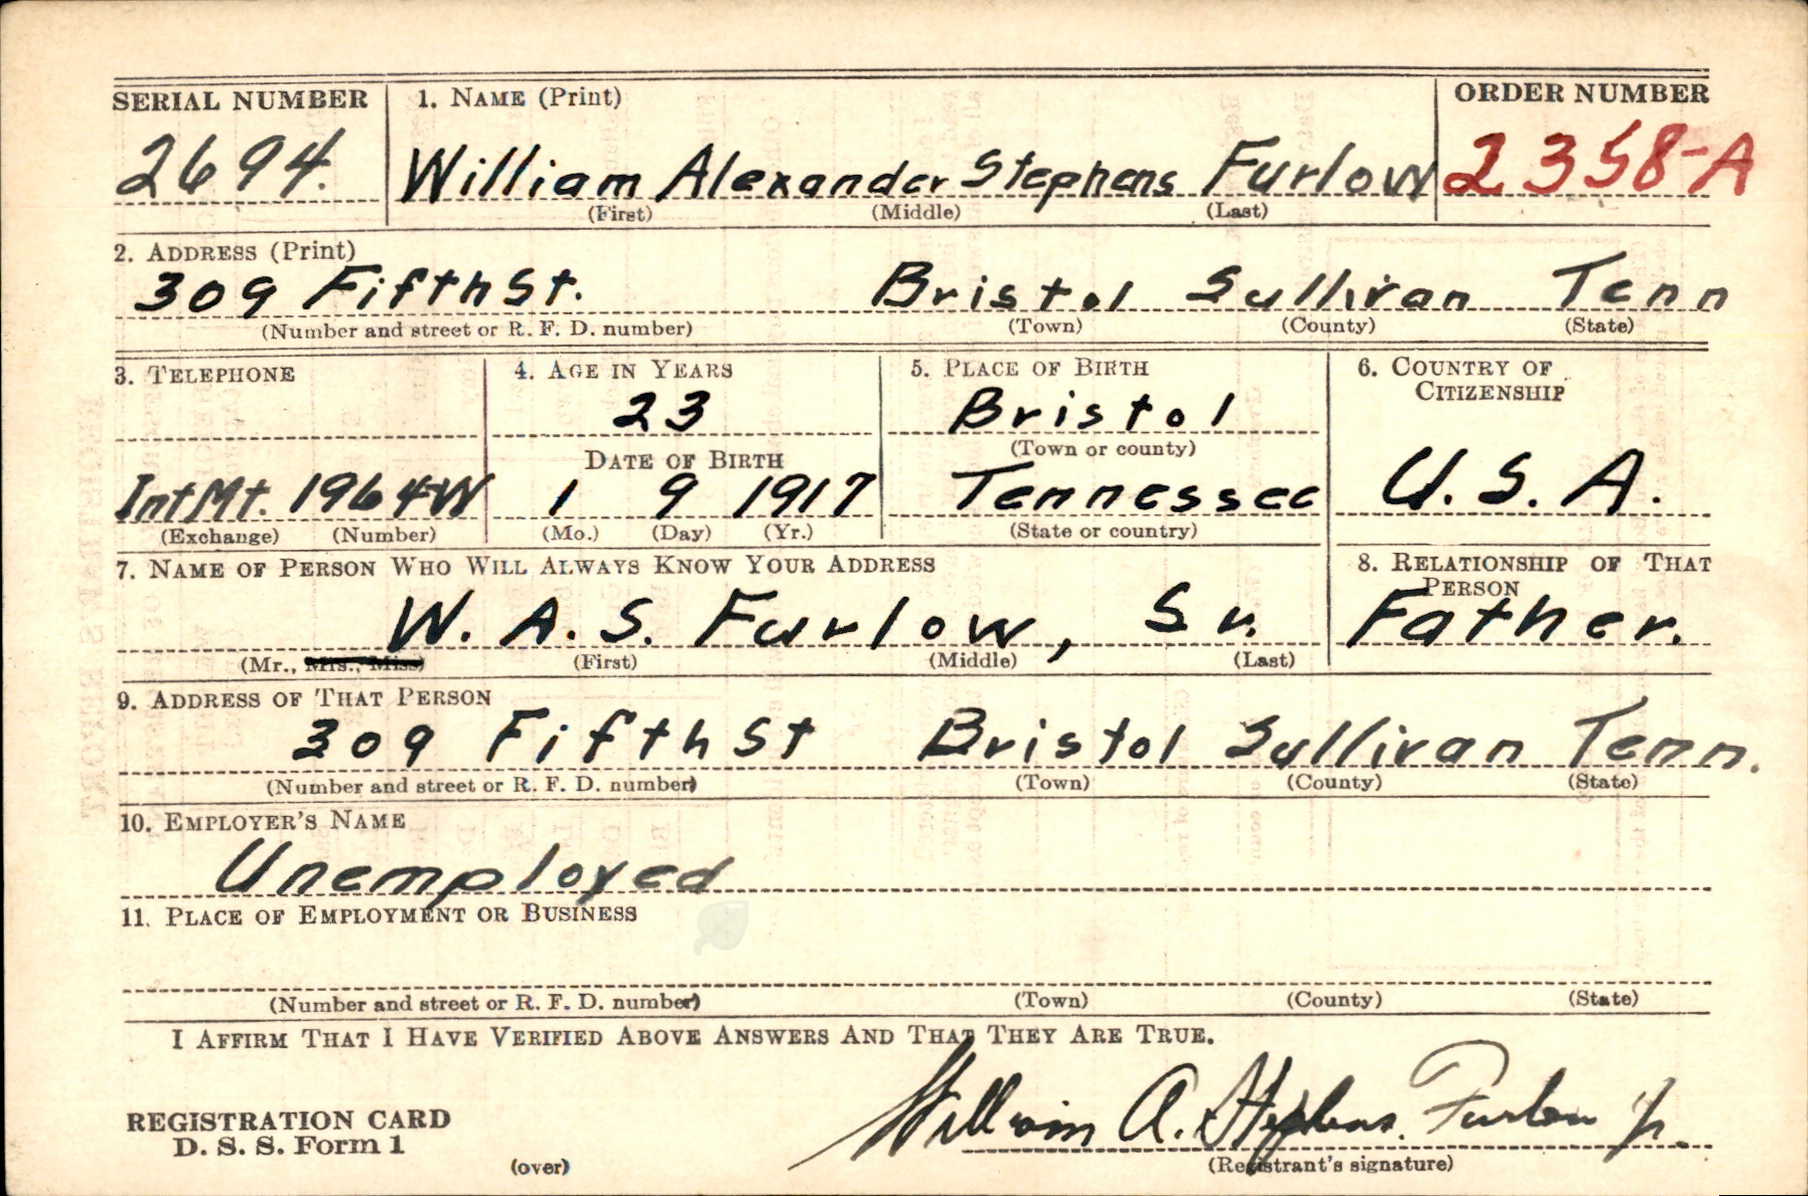 SERIAL NUMBER 1. NAME (Print) ORDER NUMBER
2694. William Alexander Stephens Furlow 2358-A
(First) (Middle) (Last)
2. ADDRESS (Print)
309 Fifth St. Bristol Sullivan Tenn
(Number and street or R. F. D. number) (Town) (County) (State)
3. TELEPHONE 4. AGE IN YEARS 5. PLACE OF BIRTH 6. COUNTRY OF CITIZENSHIP
23 Bristol
(Town or county)
DATE OF BIRTH
Int Mt. 1964-W 1 9 1917 Tennessee U. S. A.
(Exchange) (Number) (Mo.) (Day) (Yr.) (State or country)
7. NAME OF PERSON WHO WILL ALWAYS KNOW YOUR ADDRESS 8. RELATIONSHIP OF THAT PERSON
W. A. S. Furlow, Sr. Father.
(Mr., Mrs., Miss) (First) (Middle) (Last)
9. ADDRESS OF THAT PERSON
309 Fifth St Bristol Sullivan Tenn.
(Number and street or R. F. D. number) (Town) (County) (State)
10. EMPLOYER'S NAME
Unemployed
11. PLACE OF EMPLOYMENT OR BUSINESS
(Number and street or R. F. D. number) (Town) (County) (State)
I AFFIRM THAT I HAVE VERIFIED ABOVE ANSWERS AND THAT THEY ARE TRUE.
REGISTRATION CARD
D. S. S. Form 1
(over)
William A. Stephens Furlow Jr.
(Registrant's signature)